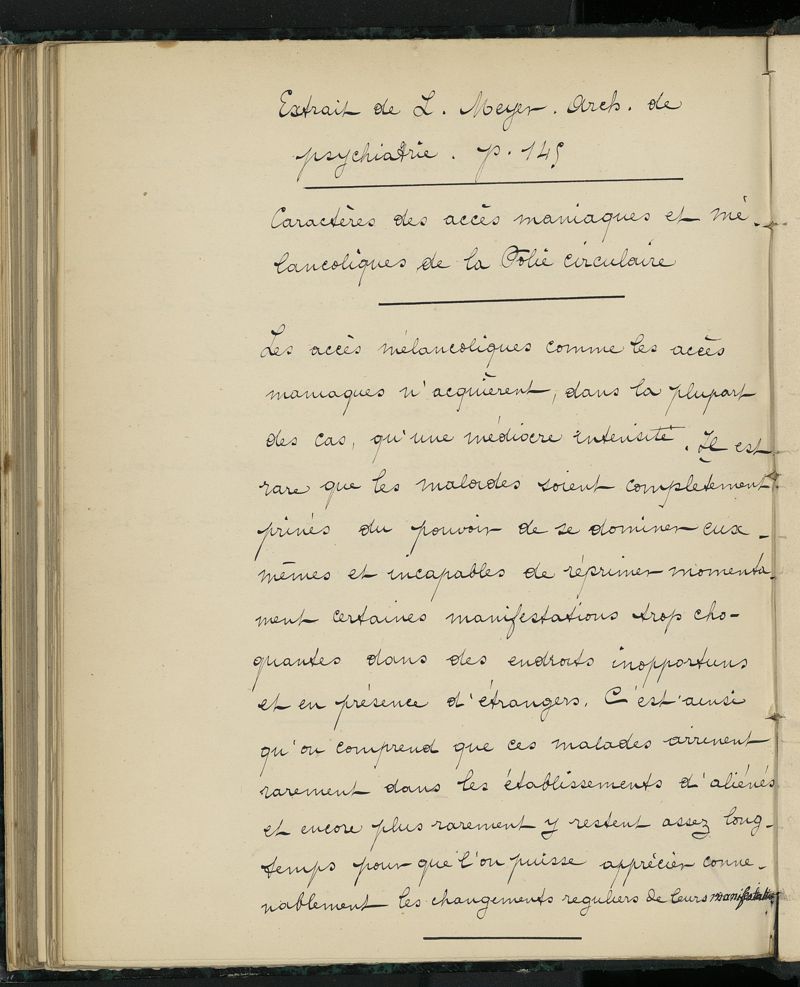 Extrait de L. Meyer. Arch. de
psychiatrie. p. 145
Caractères des accès maniaques et mé-
lancoliques de la Folie circulaire
Les accès mélancoliques comme les accès
maniaques n'acquièrent, dans la plupart
des cas, qu'une médiocre intensité. Il est
rare que les malades soient complètement
privés du pouvoir de se dominer eux-
mêmes et incapables de réprimer momenta-
ment certaines manifestations trop cho-
quantes dans des endroits inopportuns
et en présence d'étrangers. C'est ainsi
qu'on comprend que ces malades arrivent
rarement dans les établissements d'aliénés
et encore plus rarement y restent assez long-
temps pour que l'on puisse apprécier conve-
nablement les changements reguliers de leurs manifestations